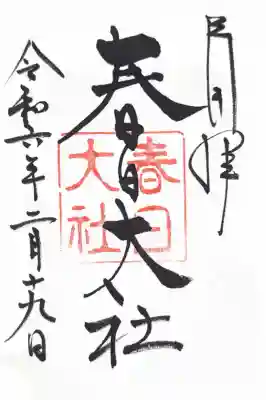 奉拝
春日大社
春日
大社
令和六年二月十九日